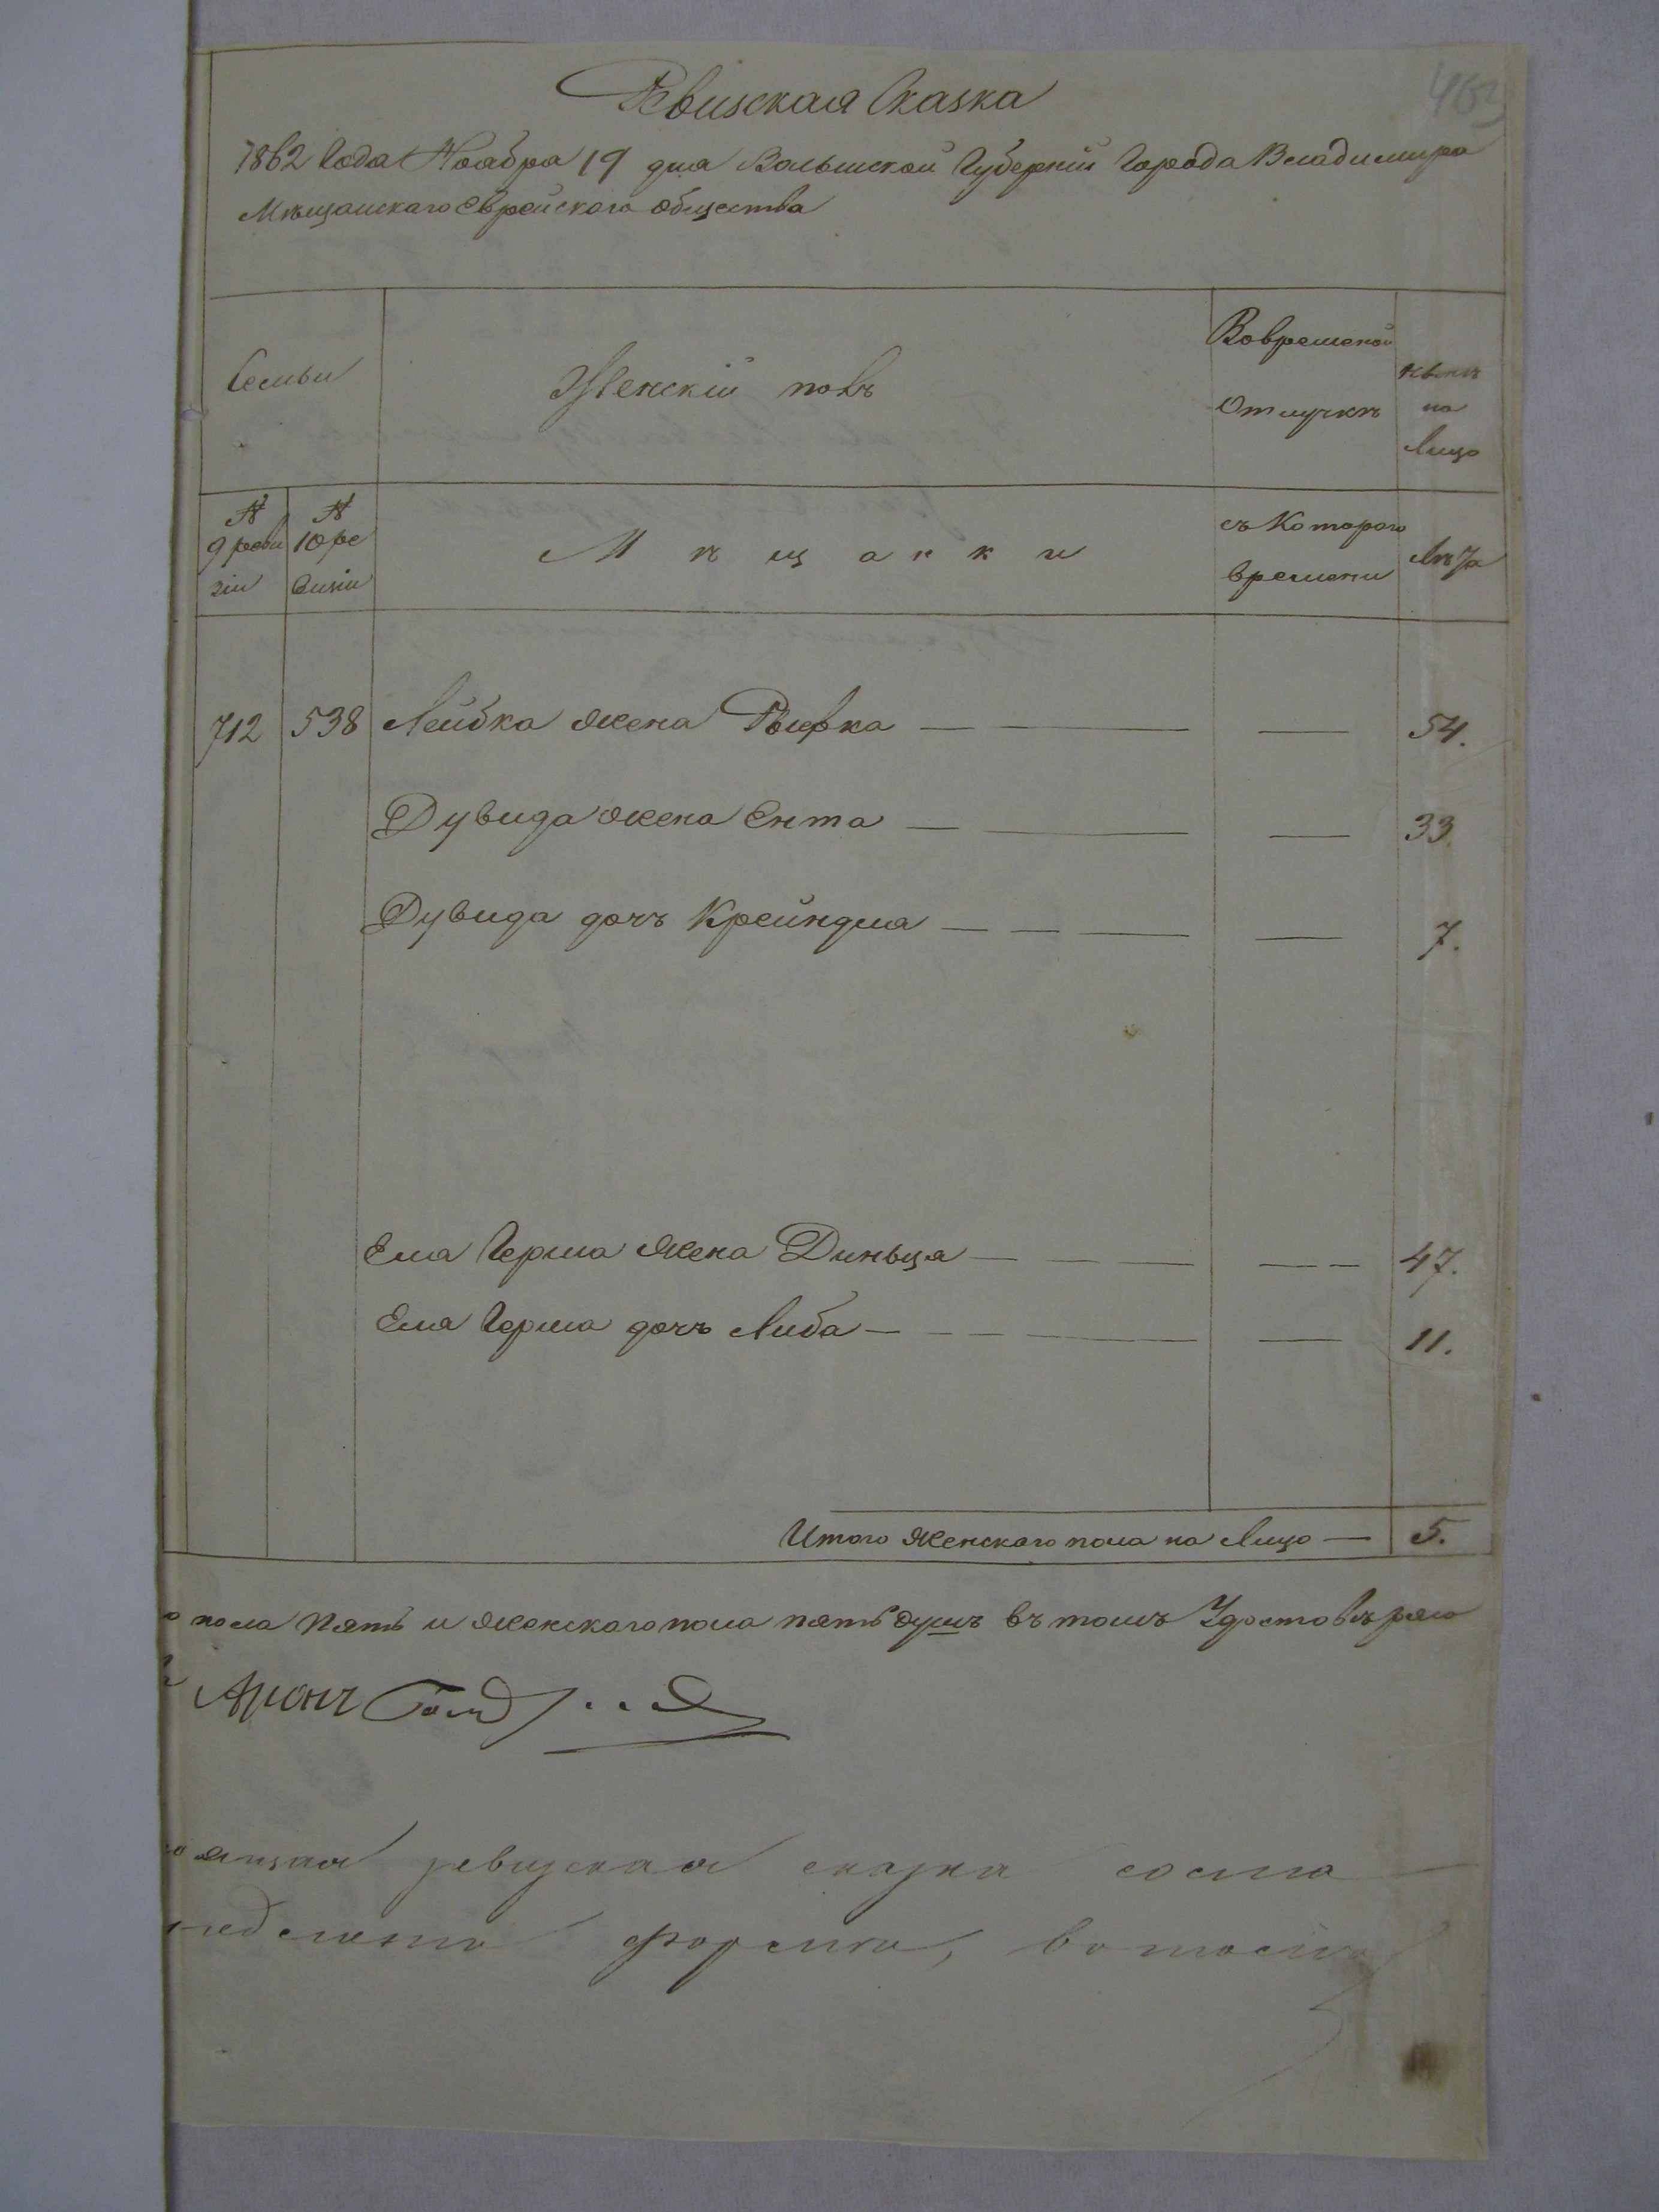 463
Ревизская Сказка
1862 Года Ноабра 19 дна Волынской Губерніи Города Владимира
Мѣщанскаго Еврейского общества
Семьи
Женскій полъ
Вовременой
Отлучкѣ
нынѣ
на
Лицо
№
9 реви
зіи
№
10 ре
визіи
Мѣщанки
съ Котораго
времени
Лѣта
712 538 Лейбка жена Рывка — — — 54.
Дувида жена Ента — — — 33.
Дувида дочъ Крейндла — — — — 7.
Ела Герша жена Диньця — — — — — 47.
Ела Герша дочъ Либа — — — — — 11.
Итого женскаго пола на Лицо — 5.
о пола пять и женскаго пола пять душъ въ томъ Удостовѣряю
Аронъ
ящая ревизская сказка соста
форми, в